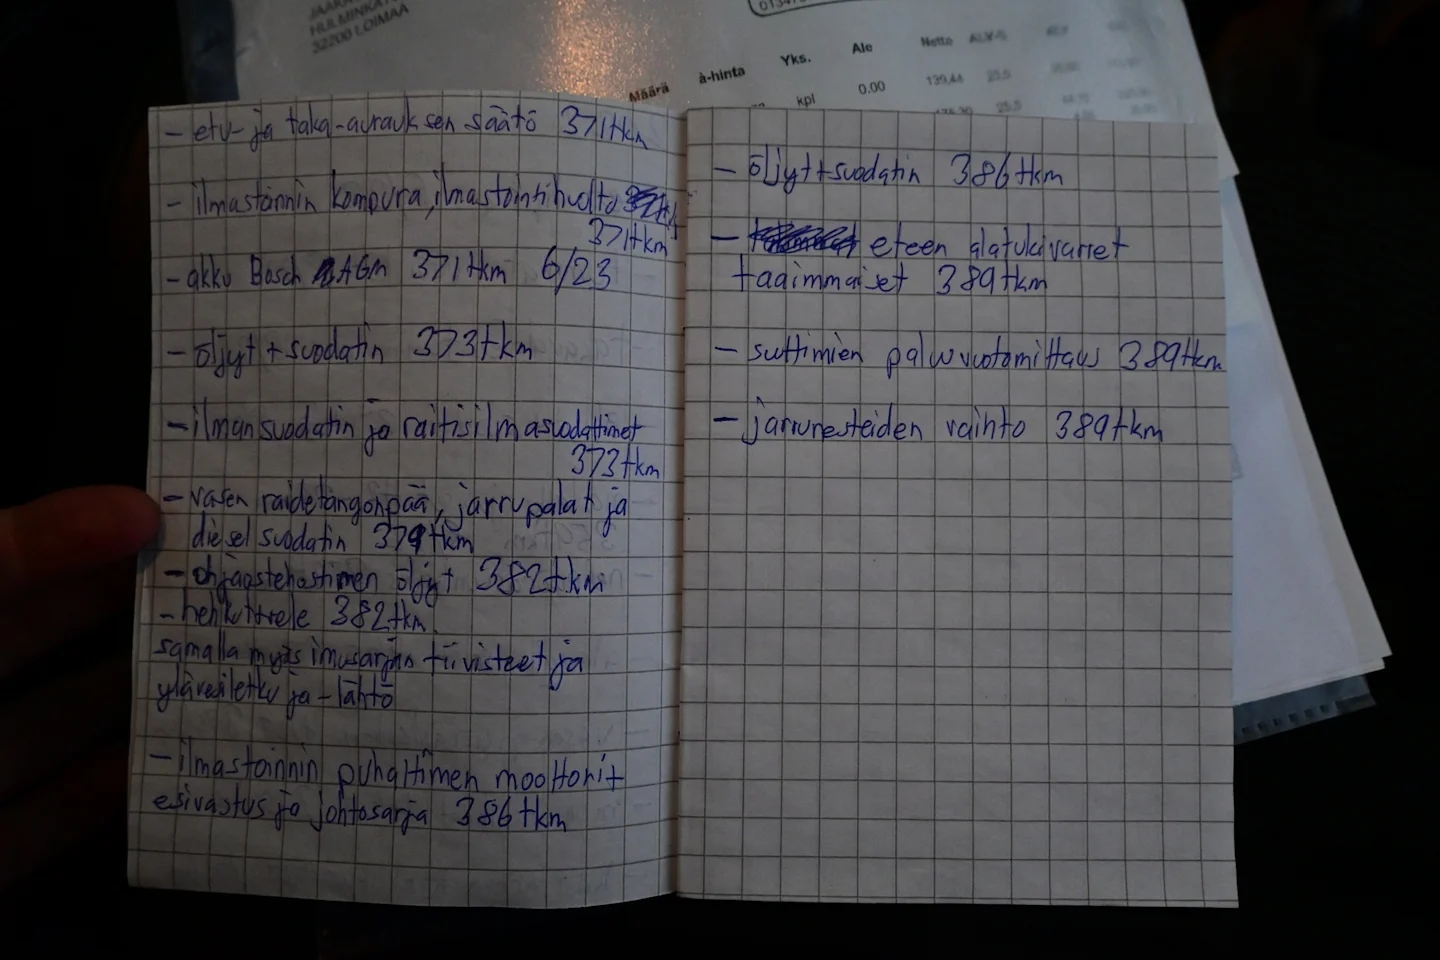 HULMINKAT
32200 LOIMAA
Määrä à-hinta Yks. Ale Netto ALV-%
kpl 0.00 139,44 25,5
25,5
- etu- ja taka-aurauksen säätö 371tkm
- ilmastoinnin kompura, ilmastointihuolto
371tkm
- akku Bosch AGM 371tkm 6/23
- öljyt + suodatin 373tkm
- ilmansuodatin ja raitisilmasuodattimet
373tkm
- vasen raidetangonpää, jarrupalat ja
diesel suodatin 379tkm
- ohjaustehostimen öljyt 382tkm
- hehkutrele 382tkm
samalla myös imusarjan tiivisteet ja
ylävesiletku ja -lähtö
- ilmastoinnin puhaltimen moottori+
esivastus ja johtosarja 386tkm
- öljyt+suodatin 386tkm
- eteen alatukivarret
taaimmaiset 389tkm
- suttimien paluuvuotomittaus 389tkm
- jarrunesteiden vaihto 389tkm